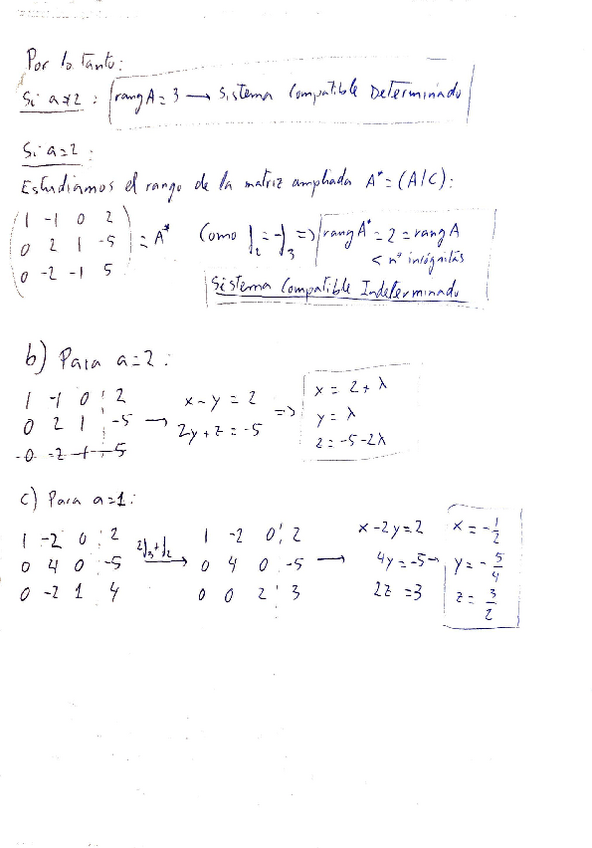 Por lo tanto:
Si a≠2: rang A = 3 → Sistema Compatible Determinado
Si a=2:
Estudiamos el rango de la matriz ampliada A* = (A/C):
1 -1 0 2
0 2 1 -5 = A* Como f₂ = -f₃ => rang A* = 2 = rang A
0 -2 -1 5 < nº incógnitas
Sistema Compatible Indeterminado
b) Para a=2:
1 -1 0 2 x-y = 2 x = 2+λ
0 2 1 -5 → 2y+z = -5 => y = λ
0 -2 -1 5 z = -5-2λ
c) Para a=1:
1 -2 0 2 2f₃+f₂ 1 -2 0 2 x-2y=2 x = -1/2
0 4 0 -5 → 0 4 0 -5 → 4y=-5 → y = -5/4
0 -2 1 4 0 0 2 3 2z=3 z = 3/2